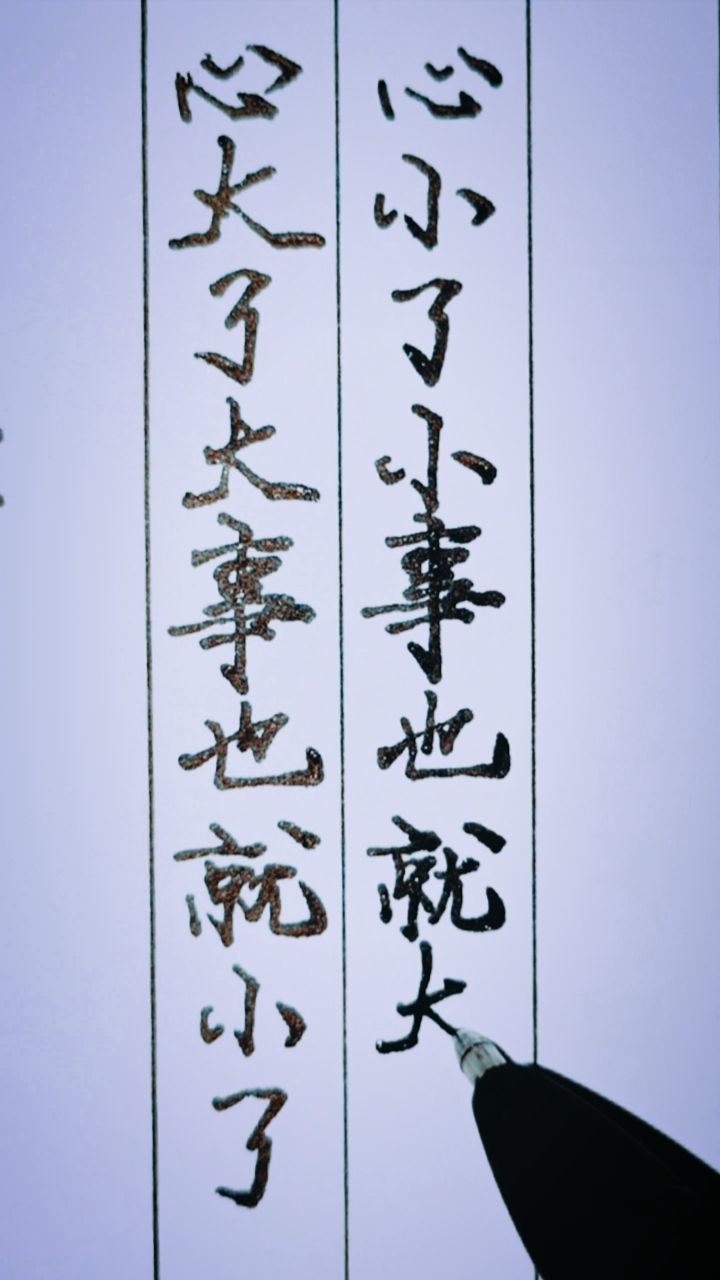 心大了大事也就小了
心小了小事也就大